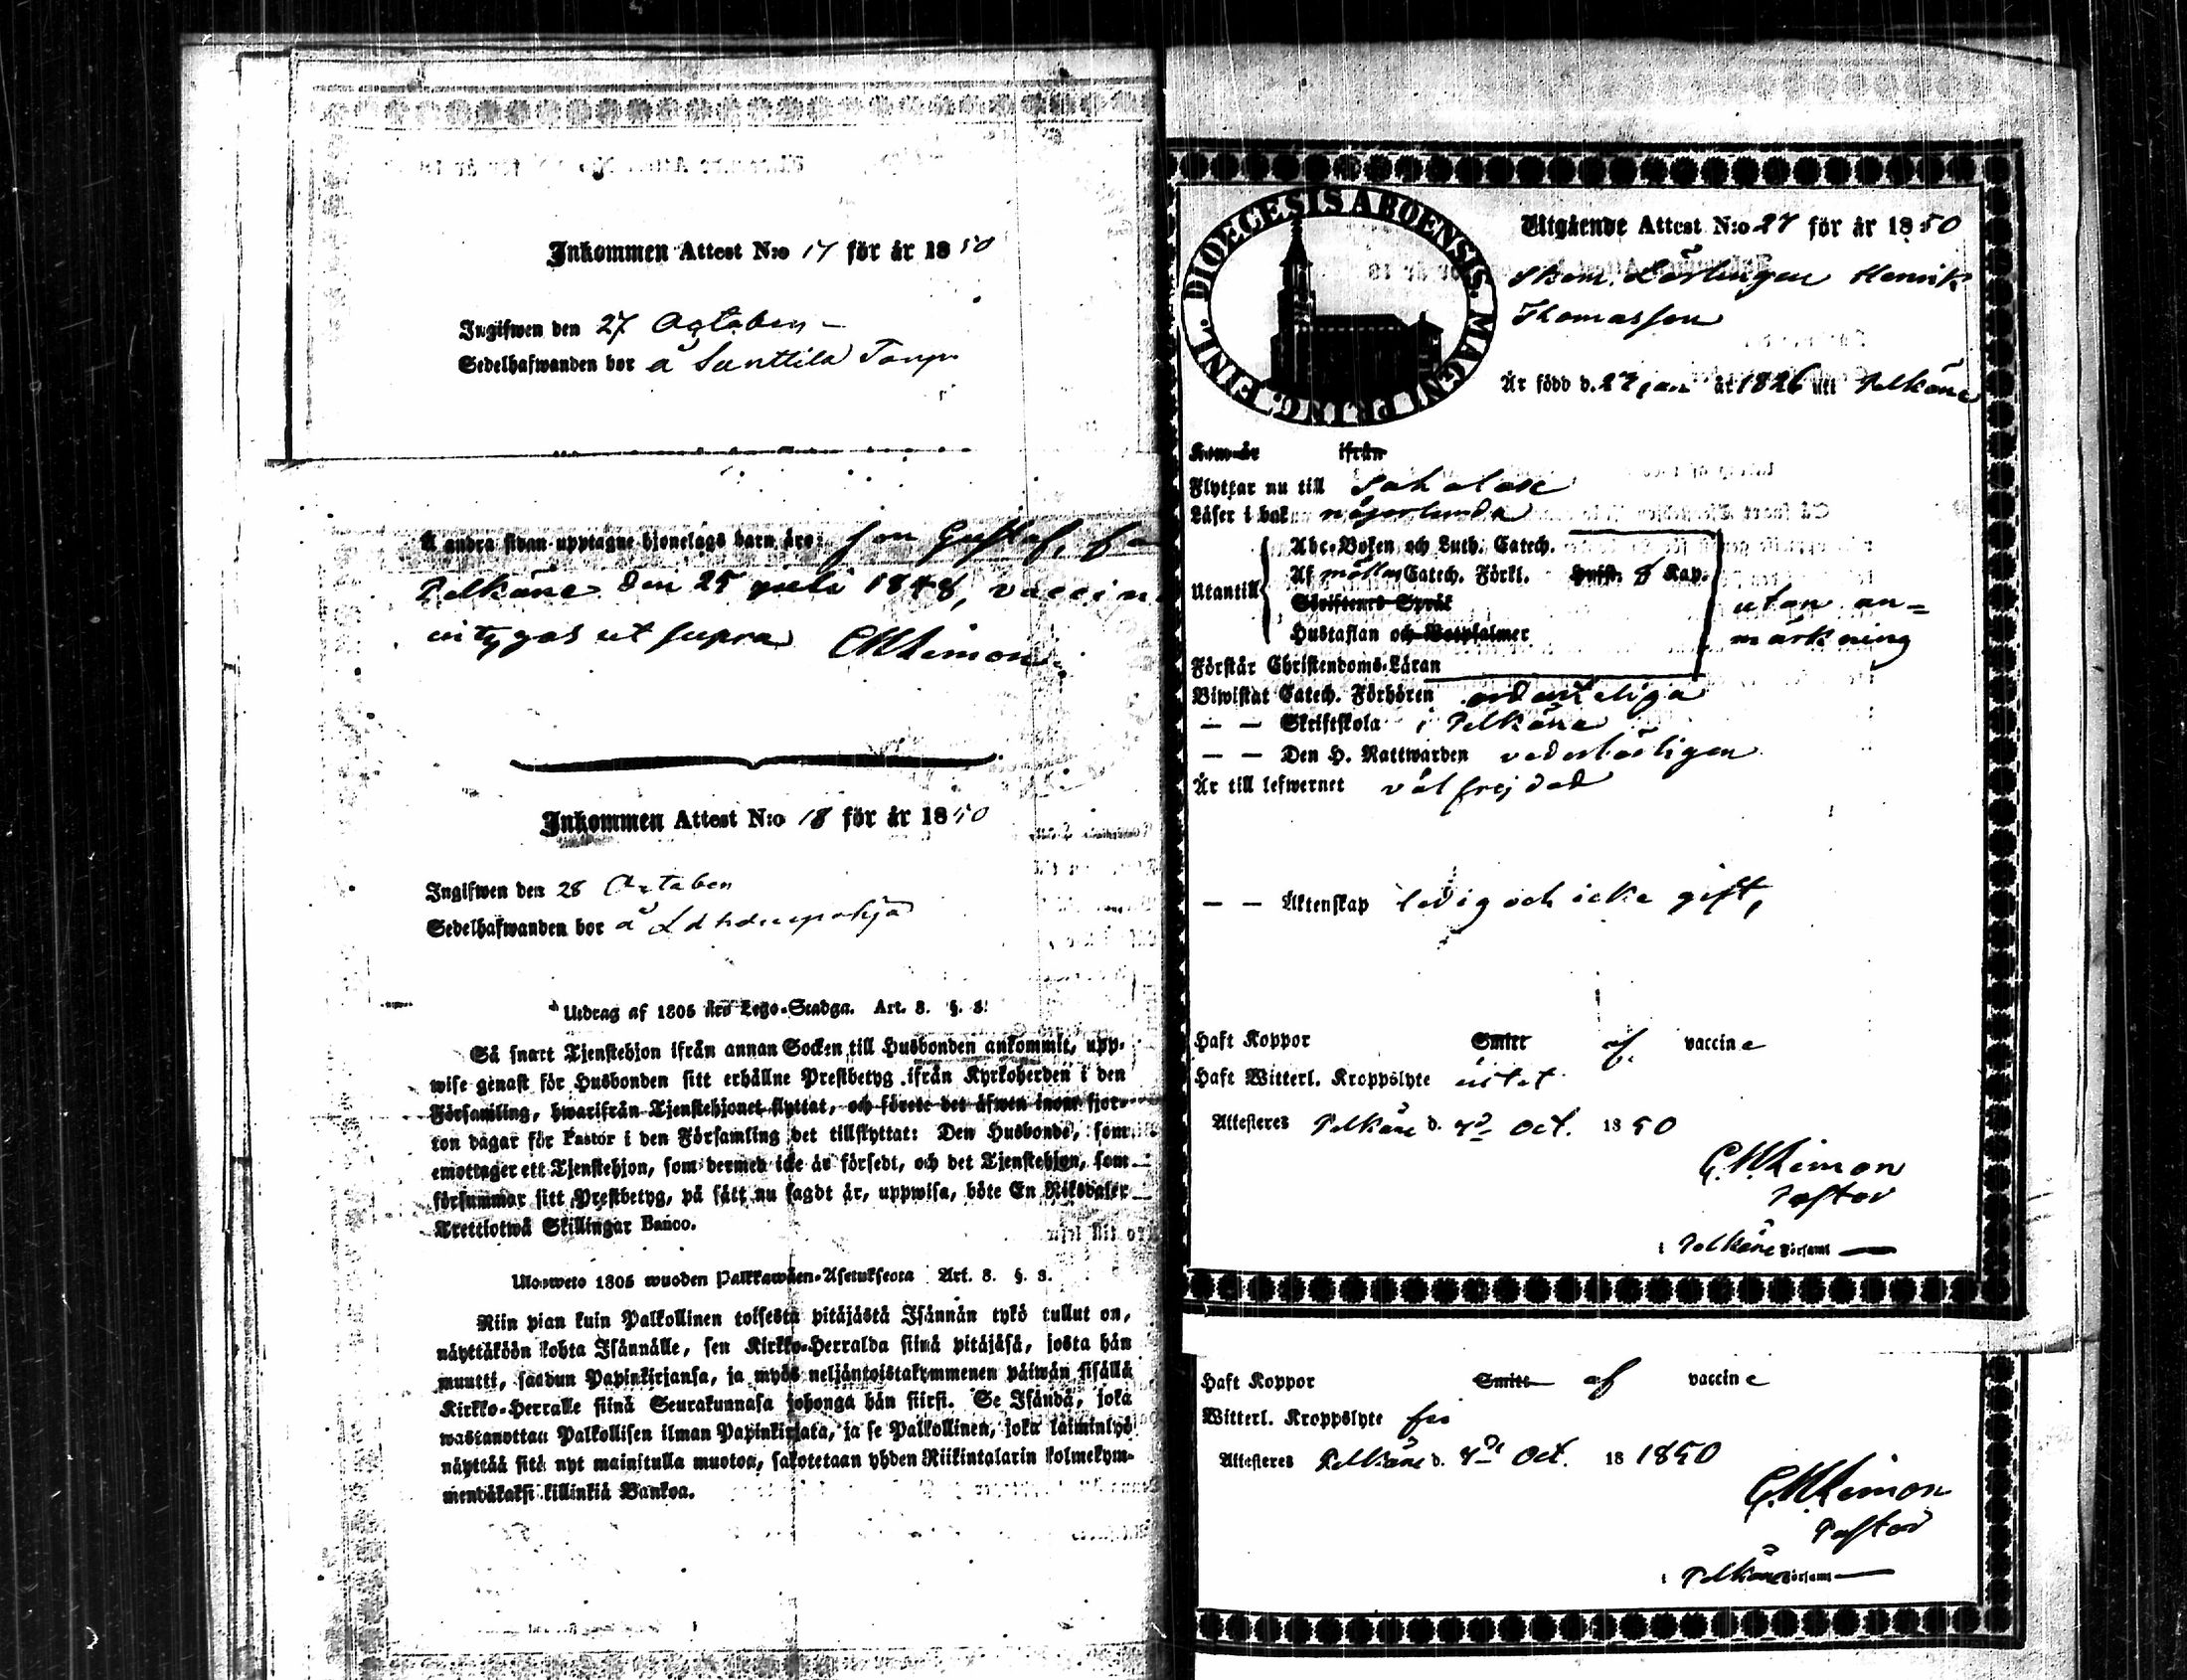 Inkommen Attest N:o 17 för år 1850
Ingifwen den 27 October
Sedelhafwanden bor å Santtila Torp
Å andra sidan upptagne hjonelags barn äro: son Gustaf, fö
Pelkäne den 25 juli 1848, vaccin
ut supra
Inkommen Attest N:o 18 för år 1850
Ingifwen den 28 October
Sedelhafwanden bor å
Utdrag af 1805 års Lego-Stadga. Art. 8. §. 3.
Så snart Tjenstehjon ifrån annan Socken till Husbonden ankommit, upp-
wise genast för Husbonden sitt erhållne Prestbetyg ifrån Kyrkoherden i den
Församling, hwarifrån Tjenstehjonet flyttat, och förete det äfwen inom fjor-
ton dagar för Pastor i den Församling det tillflyttat: Den Husbonde, som
emottager ett Tjenstehjon, som dermed icke är försedt, och det Tjenstehjon, som
försummar sitt Prestbetyg, på sätt nu sagdt är, uppwisa, böte En Riksdaler
Trettiotwå Skillingar Banco.
Ulosweto 1805 wuoden Palkkawäen-Asetuksesta Art. 8. §. 3.
Niin pian kuin Palkollinen toisesta pitäjästä Isännän tykö tullut on,
näyttäköön kohta Isännälle, sen Kirkko-Herralda siinä pitäjäsä, josta hän
muutti, saadun Papinkirjansa, ja myös neljäntoistakymmenen päiwän sisällä
Kirkko-Herralle siinä Seurakunnasa johonga hän siirsi. Se Isändä, joka
wastanottaa Palkollisen ilman Papinkirjata, ja se Palkollinen, joka laiminlyö
näyttää sitä nyt mainitulla muotoa, sakotetaan yhden Riikintalarin kolmekym-
mendäkaksi killinkiä Bankoa.
DIOECESIS ABOENSIS. MAGNI PRINC. FINL.
Utgående Attest N:o 27 för år 1850
Skom. Lärlingen Henrik
Thomasson
Är född d. 27 jan år 1826 uti Pelkäne
Kom år ifrån
Flyttar nu till Sahalax
Läser i bok någorlunda
Abc-Boken och Luth. Catech.
Af möllers Catech. Förkl. Hufst. 8 Kap.
Utantill
Skriftenes Språk
utan an=
Hustaflan och Botpsalmer
märkning
Förstår Christendoms-Läran
Biwistat Catech. Förhören ordenteliga
— — Skriftskola i Pelkäne
— — Den H. Nattwarden vederbörligen
Är till lefwernet välfrejdad
— — Äktenskap ledig och icke gift,
Haft Koppor Smitt af vaccine
Haft Witterl. Kroppslyte intet
Attesteres Pelkäne d. 4de Oct. 1850
Pastor
i Pelkäne Församl
Haft Koppor Smitt af vaccine
Witterl. Kroppslyte fri
Attesteres Pelkäne d. 4de Oct. 18 1850
Pastor
i Pelkäne Församl